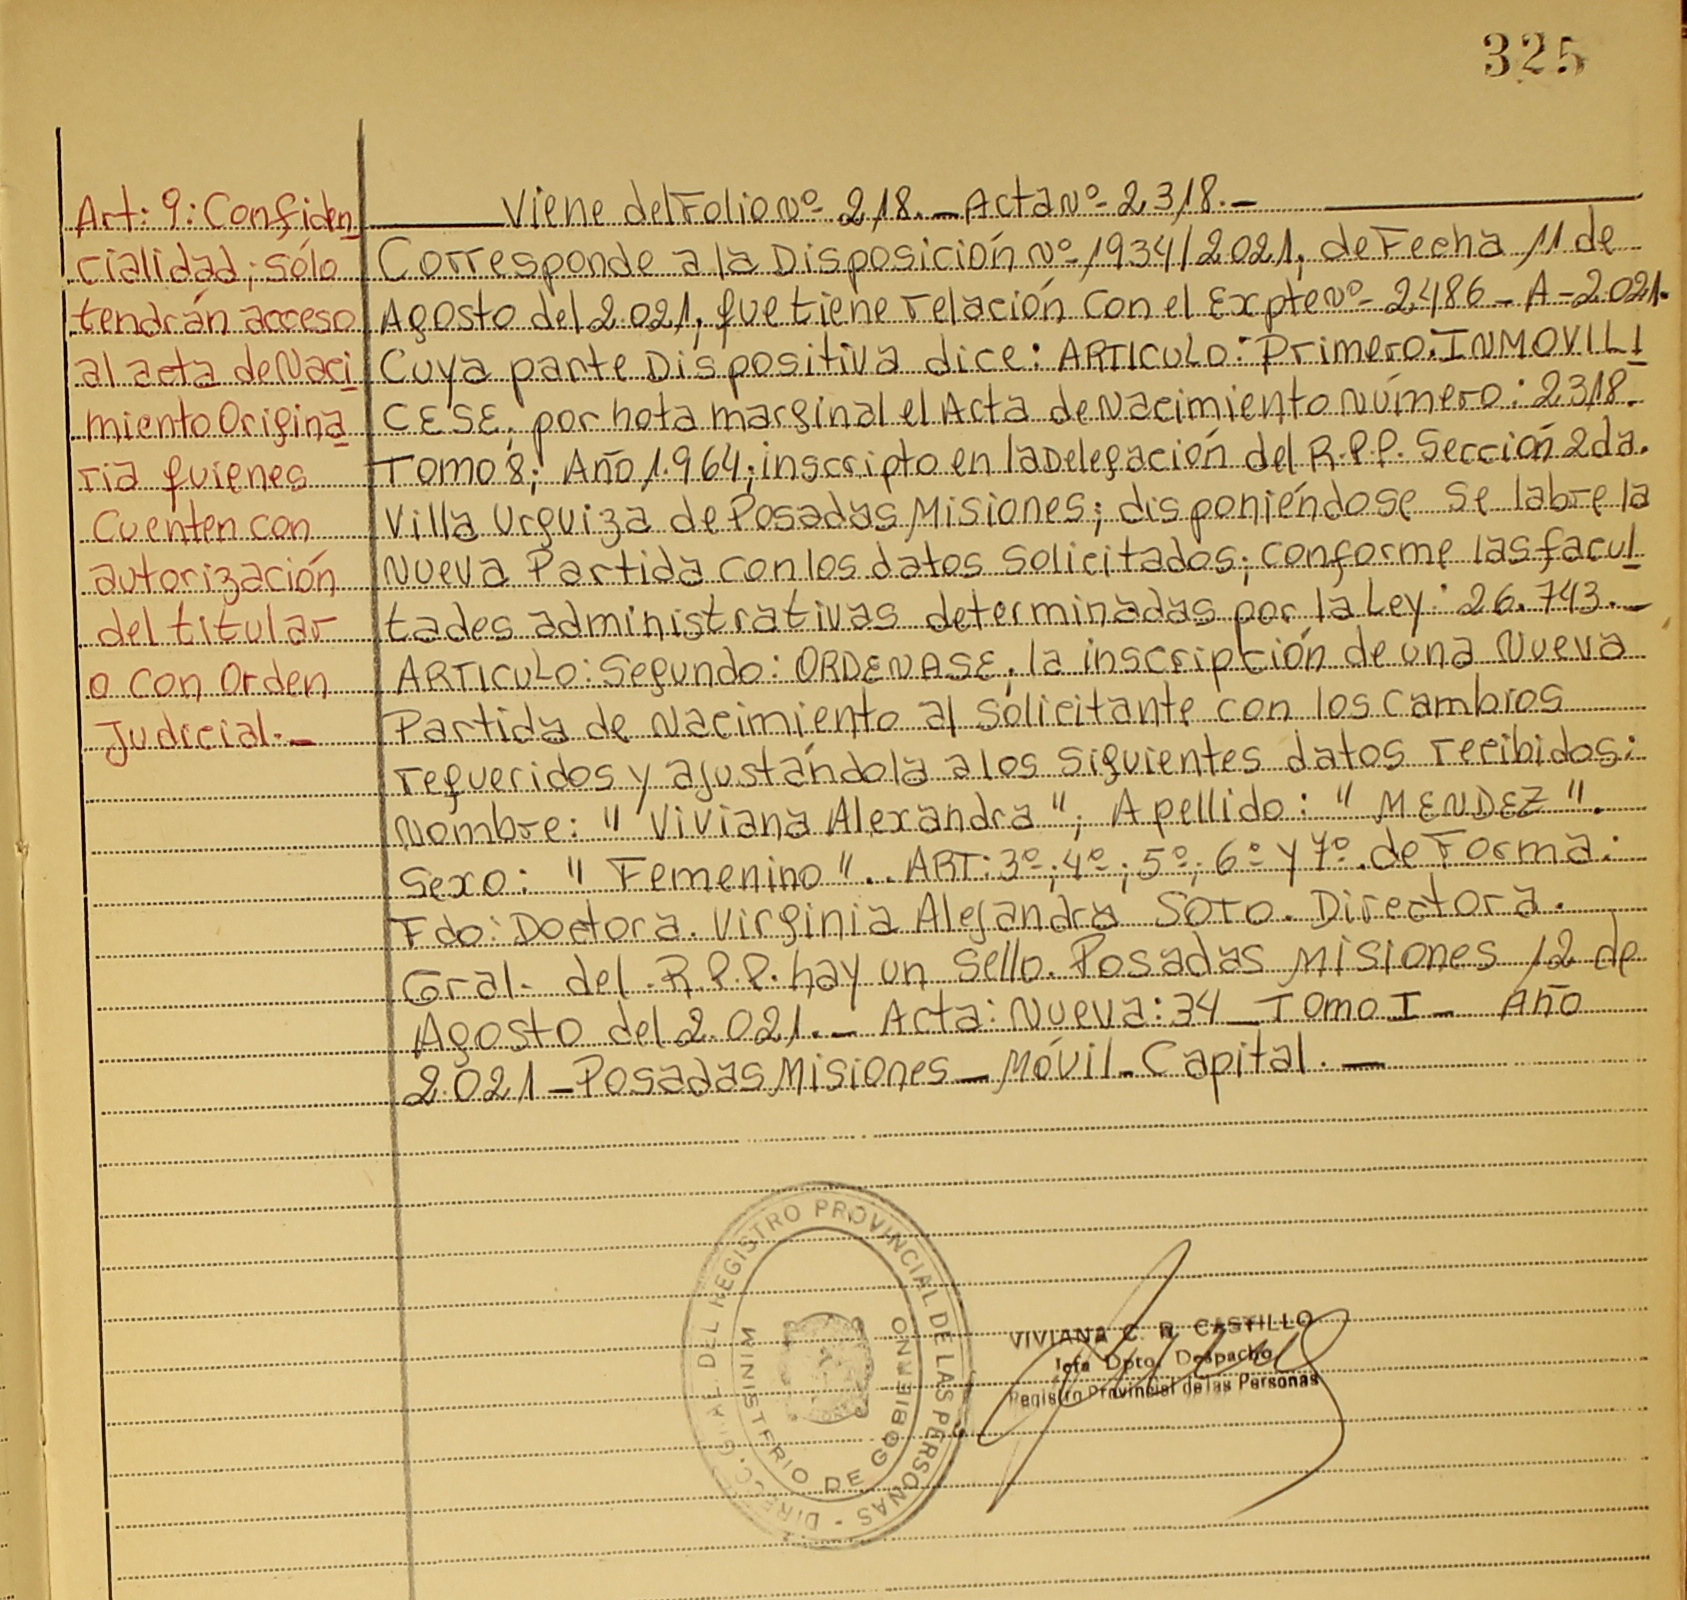 325
Art: 9: Confiden
cialidad; sólo
tendrán acceso
al acta de Naci
miento Origina
ria quienes
Cuenten con
autorización
del titular
o con Orden
Judicial.-
Viene del Folio Nº- 218.- Acta Nº- 2.318.-
Corresponde a la Disposición Nº- 1934/2.021, de Fecha 11 de
Agosto del 2.021, que tiene relación con el Expte Nº- 2.486-A-2.021.
Cuya parte Dispositiva dice: ARTICULO: Primero: INMOVILI
CESE, por nota marginal el Acta de Nacimiento Número: 2.318.
Tomo 8; Año 1.964; inscripto en la Delegación del R.P.P. Sección 2da.
Villa Urquiza de Posadas Misiones; disponiéndose se labre la
Nueva Partida con los datos solicitados; conforme las facul
tades administrativas determinadas por la Ley: 26.743.-
ARTICULO: Segundo: ORDENASE, la inscripción de una Nueva
Partida de Nacimiento al solicitante con los cambios
requeridos y ajustándola a los siguientes datos recibidos:
Nombre: "Viviana Alexandra"; Apellido: "MENDEZ".
Sexo: "Femenino".. ART: 3º; 4º; 5º; 6º y 7º. de Forma:
Fdo: Doctora. Virginia Alejandra SOTO. Directora.
Gral. del R.P.P. hay un sello. Posadas Misiones 12 de
Agosto del 2.021.- Acta: Nueva: 34 - Tomo I - Año
2.021 - Posadas Misiones - Móvil - Capital.-
DIRECC. GRAL. DEL REGISTRO PROVINCIAL DE LAS PERSONAS -
MINISTERIO DE GOBIERNO
VIVIANA C. R. CASTILLO
Jefa Dpto. Despacho
Registro Provincial de las Personas